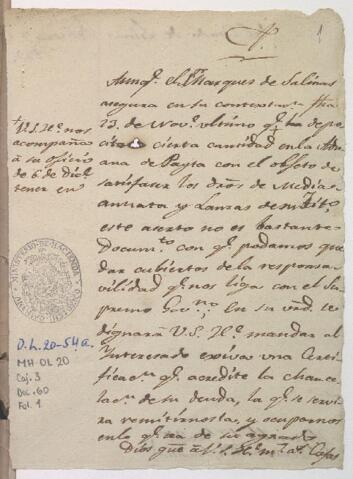 1
Aunqe. el Marques de Salinas
asegura en su contestaon. fha
13 de Nove. ultimo qe. ha de po
cierta cantidad en la Adu
ana de Payta con el objeto de
satisfacer los dros de Media
annata y Lanzas de su Tito,
este aserto no es bastante
Documto. con qe. podamos que
dar cubiertos de la responsa
vilidad qe. nos liga con el Su
premo Govno. En su vrd. se
dignará V.S. Ye. mandar al
Interesado exiva una Certi
ficaon. qe. acredite la chance
laon. de su deuda, la qe. se servi
ra remitirnosla, y ocuparnos
en lo qe. sea de su agrado
Dios gue. á V.S. Ye. ms. as. Cajas
+ V.S. Ye. nos
acompaña
á su oficio
de 6 de Dice.
tener en
MINISTERIO DE HACIENDA
O.L. 20-54a.
MH-OL 20
Caj. 3
Doc. 60
Fol. 1